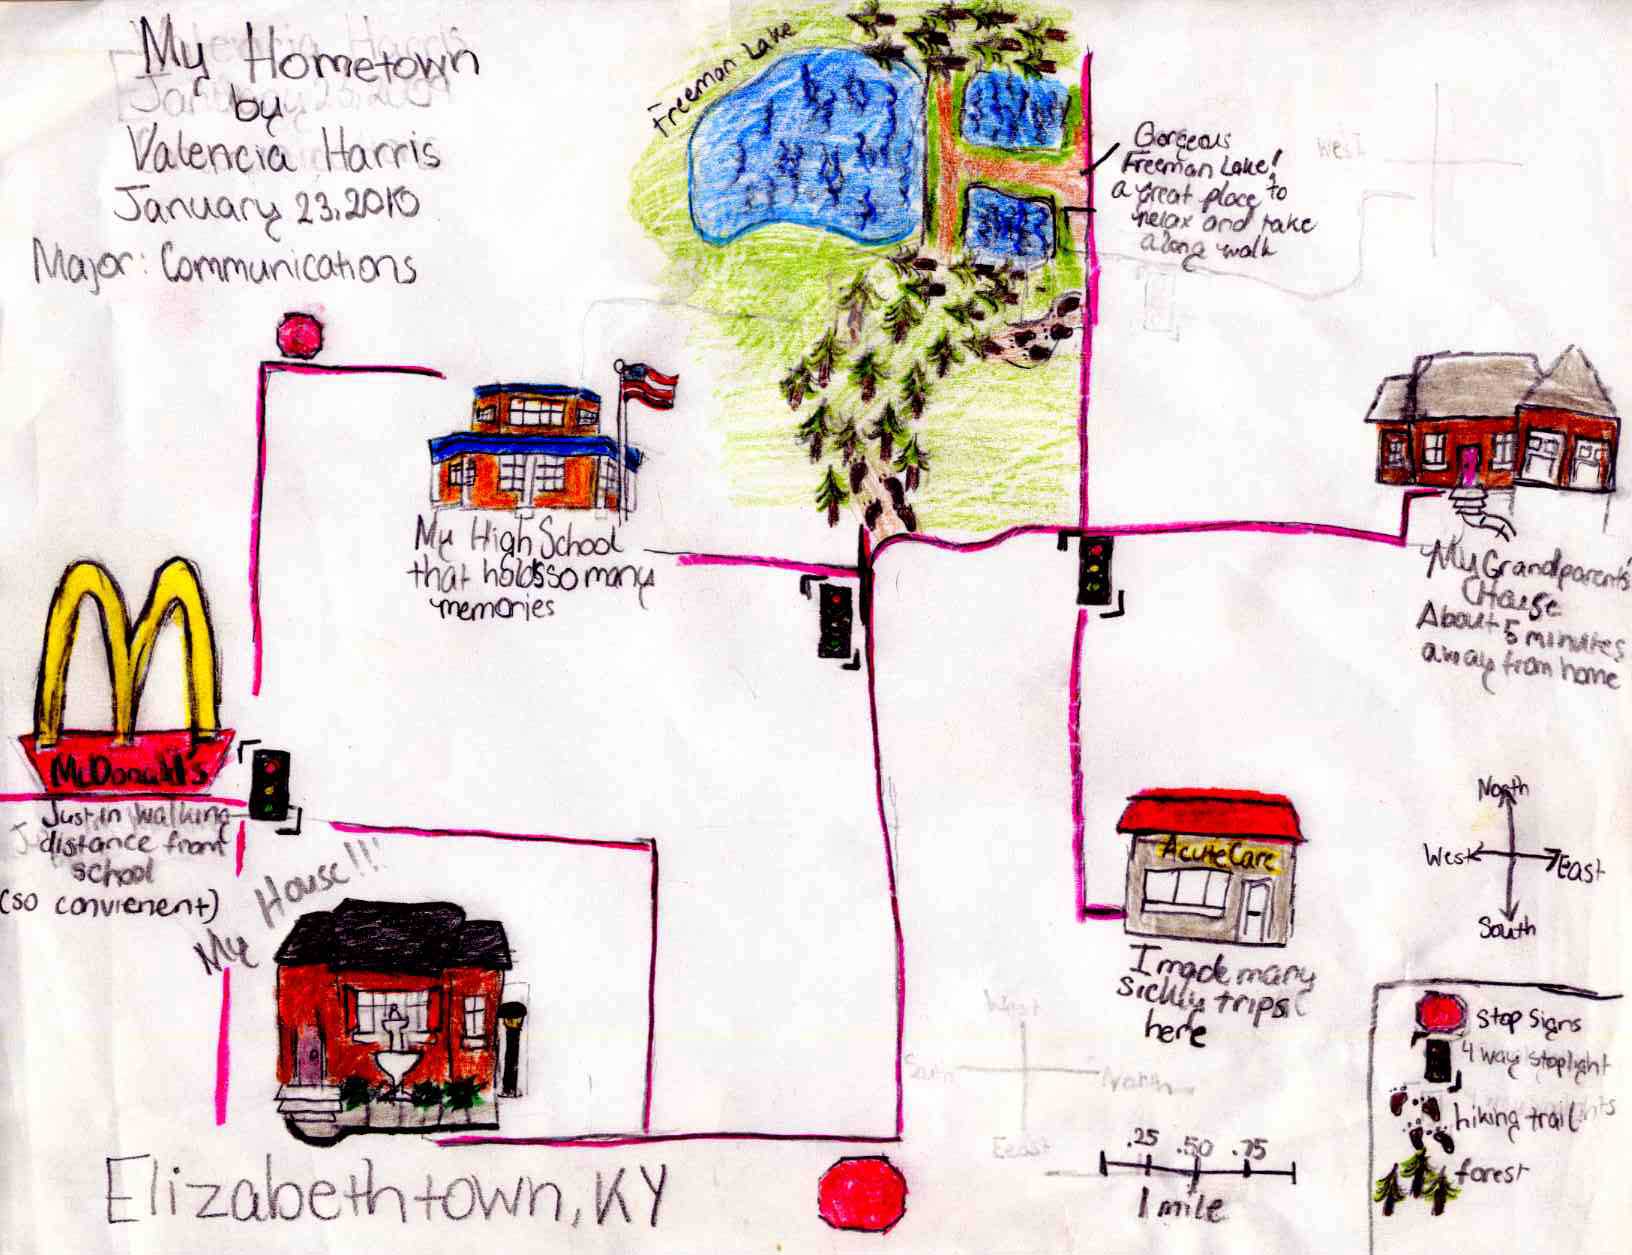 My Hometown
by
Valencia Harris
January 23, 2010
Major: Communications
Freeman Lake
Gorgeous
Freeman Lake!
a great place to
relax and take
a long walk
West
My High School
that holds so many
memories
My Grandparents'
House
About 5 minutes
away from home
McDonald's
Just in walking
distance from
school
(so convienent)
My House!!!
Acute Care
I made many
sickly trips
here
North
West
East
South
West
North
East
Stop Signs
4 way stoplight
hiking trail
forest
.25 .50 .75
1 mile
Elizabethtown, KY